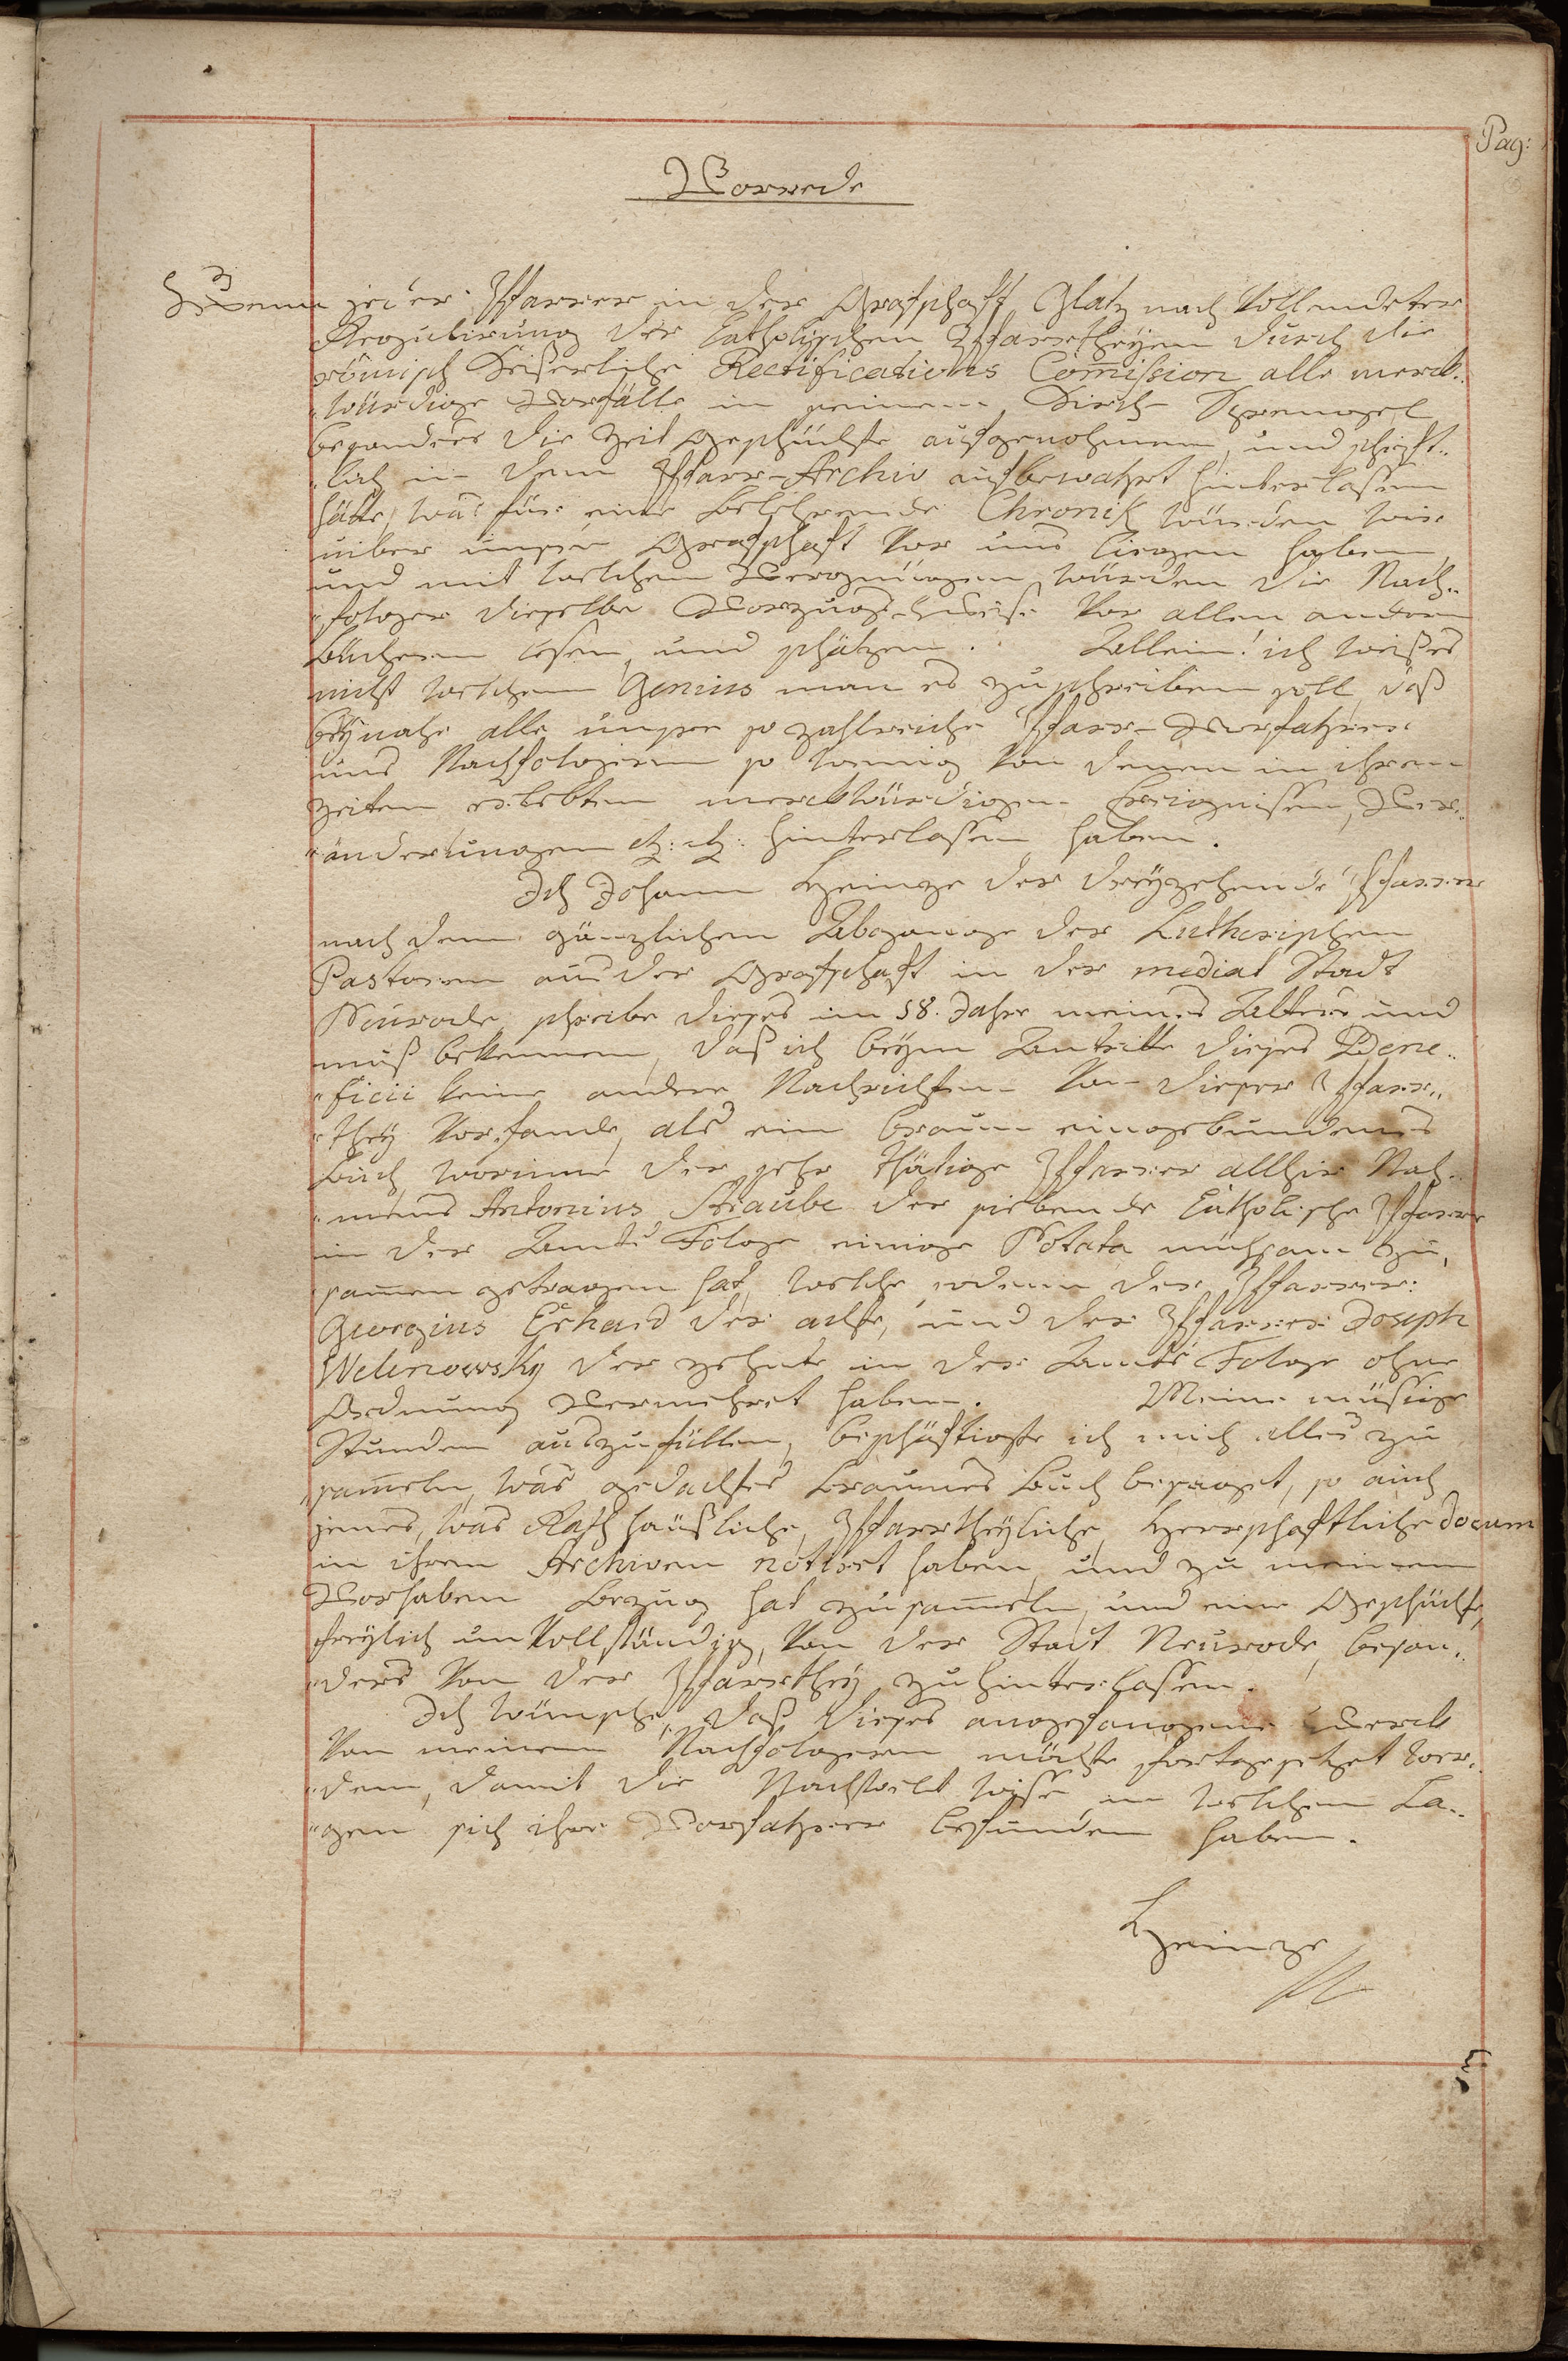 Pag:
Vorrede
Wenn jeder Pfarrer in der Grafschaft Glatz nach vollendeter
Regulirung der Catholischen Pfarrtheyen durch die
römisch Keiserliche Rectifications Comission alle merck„
„würdige Vorfälle in seinem Kirch-Sprengel
besonders die Zeit Geschichte aufgenohmen, und schrift„
„lich in dem Pfarr-Archiv aufbewahrt hinterlaßen
hätte, was für eine belehrende Chronik würden wir
uiber unsere Grafschaft vor uns liegen haben,
und mit welchem Vergnügen würden die Nach„
„folger dieselbe Vorzugs-Weise vor allen andern
Büchern lesen, und schätzen. Allein! ich weiß es
nicht welchem Genius man es zuschreiben soll, daß
beynahe alle unsere so zahlreiche Pfarr-Vorfahrer
und Nachfolgern so wenig von denen in ihren
Zeiten erlebten merckwürdigen Ereignissen, Ver„
„änderungen etz: etz: hinterlaßen haben.
Ich Johann Heinze der dreyzehende Pfarrer
nach dem gänzlichen Abgange der Lutherischen
Pastoren aus der Grafschaft in der mediat Stadt
Neurode, schreibe dieses im 58. Jahre meines Alters und
muß bekennen, daß ich beym Antritte dieses Bene„
„ficii keine andere Nachrichten von dieser Pfarr„
„they vorfande, als ein braun eingebundenes
Buch, worinne der sehr thätige Pfarrer allhier Nah„
„mens Antonius Straube der siebende Catholische Pfarrer
in der Amts Folge einige Notata mühsam zu„
samen getragen hat, welche sodenn der Pfarrer:
Georgius Erhard der achte, und der Pfarrer Joseph
Welinowsky der zehnte in der Amts Folge ohne
Ordnung Vermehret haben. Meine müßige
Stunden auszufüllen, beschäftigte ich mich alles zu
sameln, was gedachtes braunes Buch besaget, so auch
jenes, was Rathhäußliche, Pfarrtheyliche, Herrschaftliche Docum
in ihren Archiven notiret haben, und zu meinem
Vorhaben Bezug hat zusameln, und eine Geschichte,
freylich unvollständig, von der Stadt Neurode, beson„
„ders von der Pfarrthey zu hinterlassen.
Ich wünsche, daß dieses angefangene Werck
von meinen Nachfolgern möchte fortgesetzet wer„
„den, damit die Nachwelt wisse, in welchen La„
„gen sich ihre Vorfahrer befunden haben.
Heinze